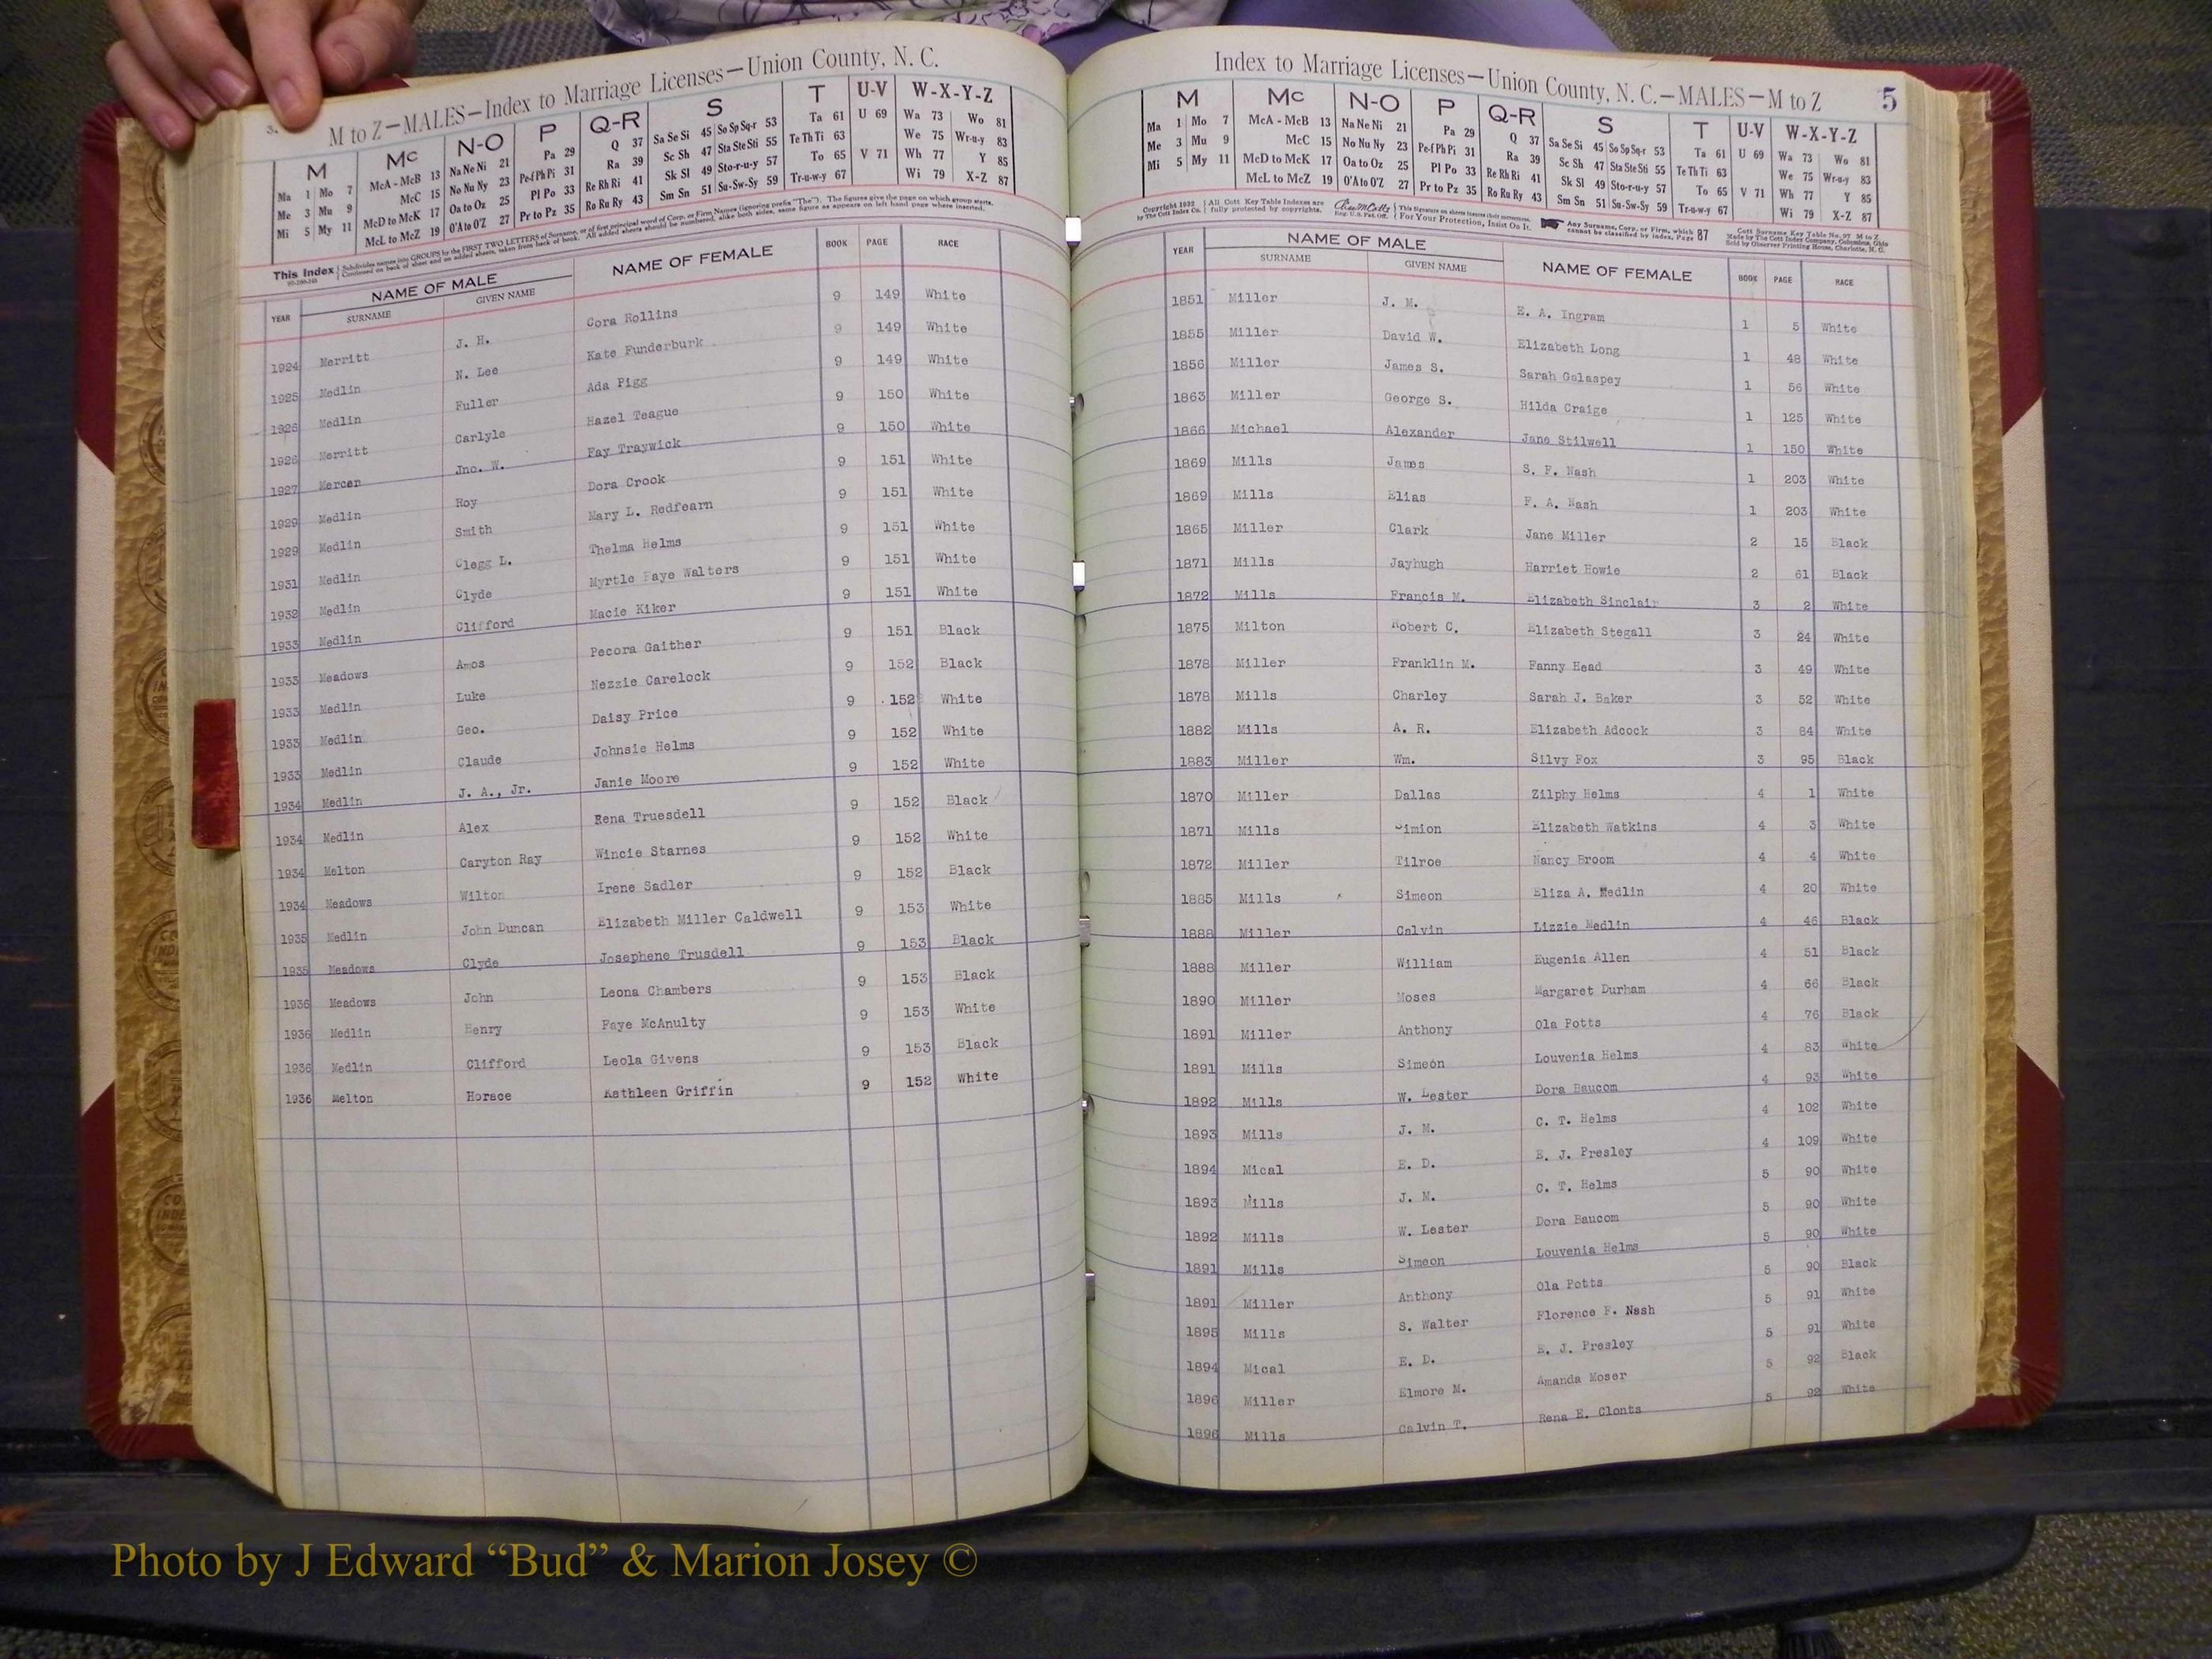 3.
M to Z—MALES—Index to Marriage Licenses—Union County, N. C.
M Mc N-O P Q-R S T U-V W-X-Y-Z
Ma 1 Mo 7 McA - McB 13 Na Ne Ni 21 Pa 29 Q 37 Sa Se Si 45 So Sp Sq-r 53 Ta 61 U 69 Wa 73 Wo 81
Me 3 Mu 9 McC 15 No Nu Ny 23 Pe-f Ph Pi 31 Ra 39 Sc Sh 47 Sta Ste Sti 55 Te Th Ti 63 We 75 Wr-u-y 83
Mi 5 My 11 McD to McK 17 Oa to Oz 25 Pl Po 33 Re Rh Ri 41 Sk Sl 49 Sto-r-u-y 57 To 65 V 71 Wh 77 Y 85
McL to McZ 19 O'A to O'Z 27 Pr to Pz 35 Ro Ru Ry 43 Sm Sn 51 Su-Sw-Sy 59 Tr-u-w-y 67 Wi 79 X-Z 87
This Index Subdivides names into GROUPS by the FIRST TWO LETTERS of Surname, or of first principal word of Corp. or Firm Names (ignoring prefix "The"). The figures give the page on which group starts.
Continued on back of sheet and on added sheets, taken from back of book. All added sheets should be numbered, alike both sides, same figure as appears on left hand page where inserted.
YEAR NAME OF MALE NAME OF FEMALE BOOK PAGE RACE
SURNAME GIVEN NAME
1924 Merritt J. H. Cora Rollins 9 149 White
1925 Medlin N. Lee Kate Funderburk 9 149 White
1926 Medlin Fuller Ada Pigg 9 149 White
1926 Merritt Carlyle Hazel Teague 9 150 White
1927 Mercer Jno. W. Fay Traywick 9 150 White
1929 Medlin Roy Dora Crook 9 151 White
1929 Medlin Smith Mary L. Redfearn 9 151 White
1931 Medlin Clegg L. Thelma Helms 9 151 White
1932 Medlin Clyde Myrtle Faye Walters 9 151 White
1933 Medlin Clifford Macie Kiker 9 151 White
1933 Meadows Amos Pecora Gaither 9 151 Black
1933 Medlin Luke Nezzie Carelock 9 152 Black
1933 Medlin Geo. Daisy Price 9 152 White
1933 Medlin Claude Johnsie Helms 9 152 White
1934 Medlin J. A., Jr. Janie Moore 9 152 White
1934 Medlin Alex Rena Truesdell 9 152 Black
1934 Melton Caryton Ray Wincie Starnes 9 152 White
1934 Meadows Wilton Irene Sadler 9 152 Black
1935 Medlin John Duncan Elizabeth Miller Caldwell 9 153 White
1935 Meadows Clyde Josephene Trusdell 9 153 Black
1936 Meadows John Leona Chambers 9 153 Black
1936 Medlin Henry Faye McAnulty 9 153 White
1936 Medlin Clifford Leola Givens 9 153 Black
1936 Melton Horace Kathleen Griffin 9 152 White
Index to Marriage Licenses—Union County, N. C.—MALES—M to Z 5
M Mc N-O P Q-R S T U-V W-X-Y-Z
Ma 1 Mo 7 McA - McB 13 Na Ne Ni 21 Pa 29 Q 37 Sa Se Si 45 So Sp Sq-r 53 Ta 61 U 69 Wa 73 Wo 81
Me 3 Mu 9 McC 15 No Nu Ny 23 Pe-f Ph Pi 31 Ra 39 Sc Sh 47 Sta Ste Sti 55 Te Th Ti 63 We 75 Wr-u-y 83
Mi 5 My 11 McD to McK 17 Oa to Oz 25 Pl Po 33 Re Rh Ri 41 Sk Sl 49 Sto-r-u-y 57 To 65 V 71 Wh 77 Y 85
McL to McZ 19 O'A to O'Z 27 Pr to Pz 35 Ro Ru Ry 43 Sm Sn 51 Su-Sw-Sy 59 Tr-u-w-y 67 Wi 79 X-Z 87
Copyright 1932 All Cott Key Table Indexes are Any Surname, Corp. or Firm, which Cott Surname Key Table No. 97 M to Z
by The Cott Index Co. fully protected by copyrights. Reg. U.S. Pat. Off. For Your Protection, Insist On It. cannot be classified by index, Page 87 Made by The Cott Index Company, Columbus, Ohio
Sold by Observer Printing House, Charlotte, N. C.
YEAR NAME OF MALE NAME OF FEMALE BOOK PAGE RACE
SURNAME GIVEN NAME
1851 Miller J. M. E. A. Ingram 1 5 White
1855 Miller David W. Elizabeth Long 1 48 White
1856 Miller James S. Sarah Galaspey 1 56 White
1863 Miller George S. Hilda Craige 1 125 White
1866 Michael Alexander Jane Stilwell 1 150 White
1869 Mills James S. F. Nash 1 203 White
1869 Mills Elias F. A. Nash 1 203 White
1865 Miller Clark Jane Miller 2 15 Black
1871 Mills Jayhugh Harriet Howie 2 61 Black
1872 Mills Francis M. Elizabeth Sinclair 3 2 White
1875 Milton Robert C. Elizabeth Stegall 3 24 White
1878 Miller Franklin M. Fanny Head 3 49 White
1878 Mills Charley Sarah J. Baker 3 52 White
1882 Mills A. R. Elizabeth Adcock 3 84 White
1883 Miller Wm. Silvy Fox 3 95 Black
1870 Miller Dallas Zilphy Helms 4 1 White
1871 Mills Simion Elizabeth Watkins 4 3 White
1872 Miller Tilroe Nancy Broom 4 4 White
1885 Mills Simeon Eliza A. Medlin 4 20 White
1888 Miller Calvin Lizzie Medlin 4 46 Black
1888 Miller William Eugenia Allen 4 51 Black
1890 Miller Moses Margaret Durham 4 66 Black
1891 Miller Anthony Ola Potts 4 76 Black
1891 Mills Simeon Louvenia Helms 4 83 White
1892 Mills W. Lester Dora Baucom 4 93 White
1893 Mills J. M. C. T. Helms 4 102 White
1894 Mical E. D. E. J. Presley 4 109 White
1893 Mills J. M. C. T. Helms 5 90 White
1892 Mills W. Lester Dora Baucom 5 90 White
1891 Mills Simeon Louvenia Helms 5 90 White
1891 Miller Anthony Ola Potts 5 90 Black
1895 Mills S. Walter Florence F. Nash 5 91 White
1894 Mical E. D. E. J. Presley 5 91 White
1896 Miller Elmore M. Amanda Moser 5 92 Black
1896 Mills Calvin T. Rena E. Clonts 5 92 White
Photo by J Edward “Bud” & Marion Josey ©